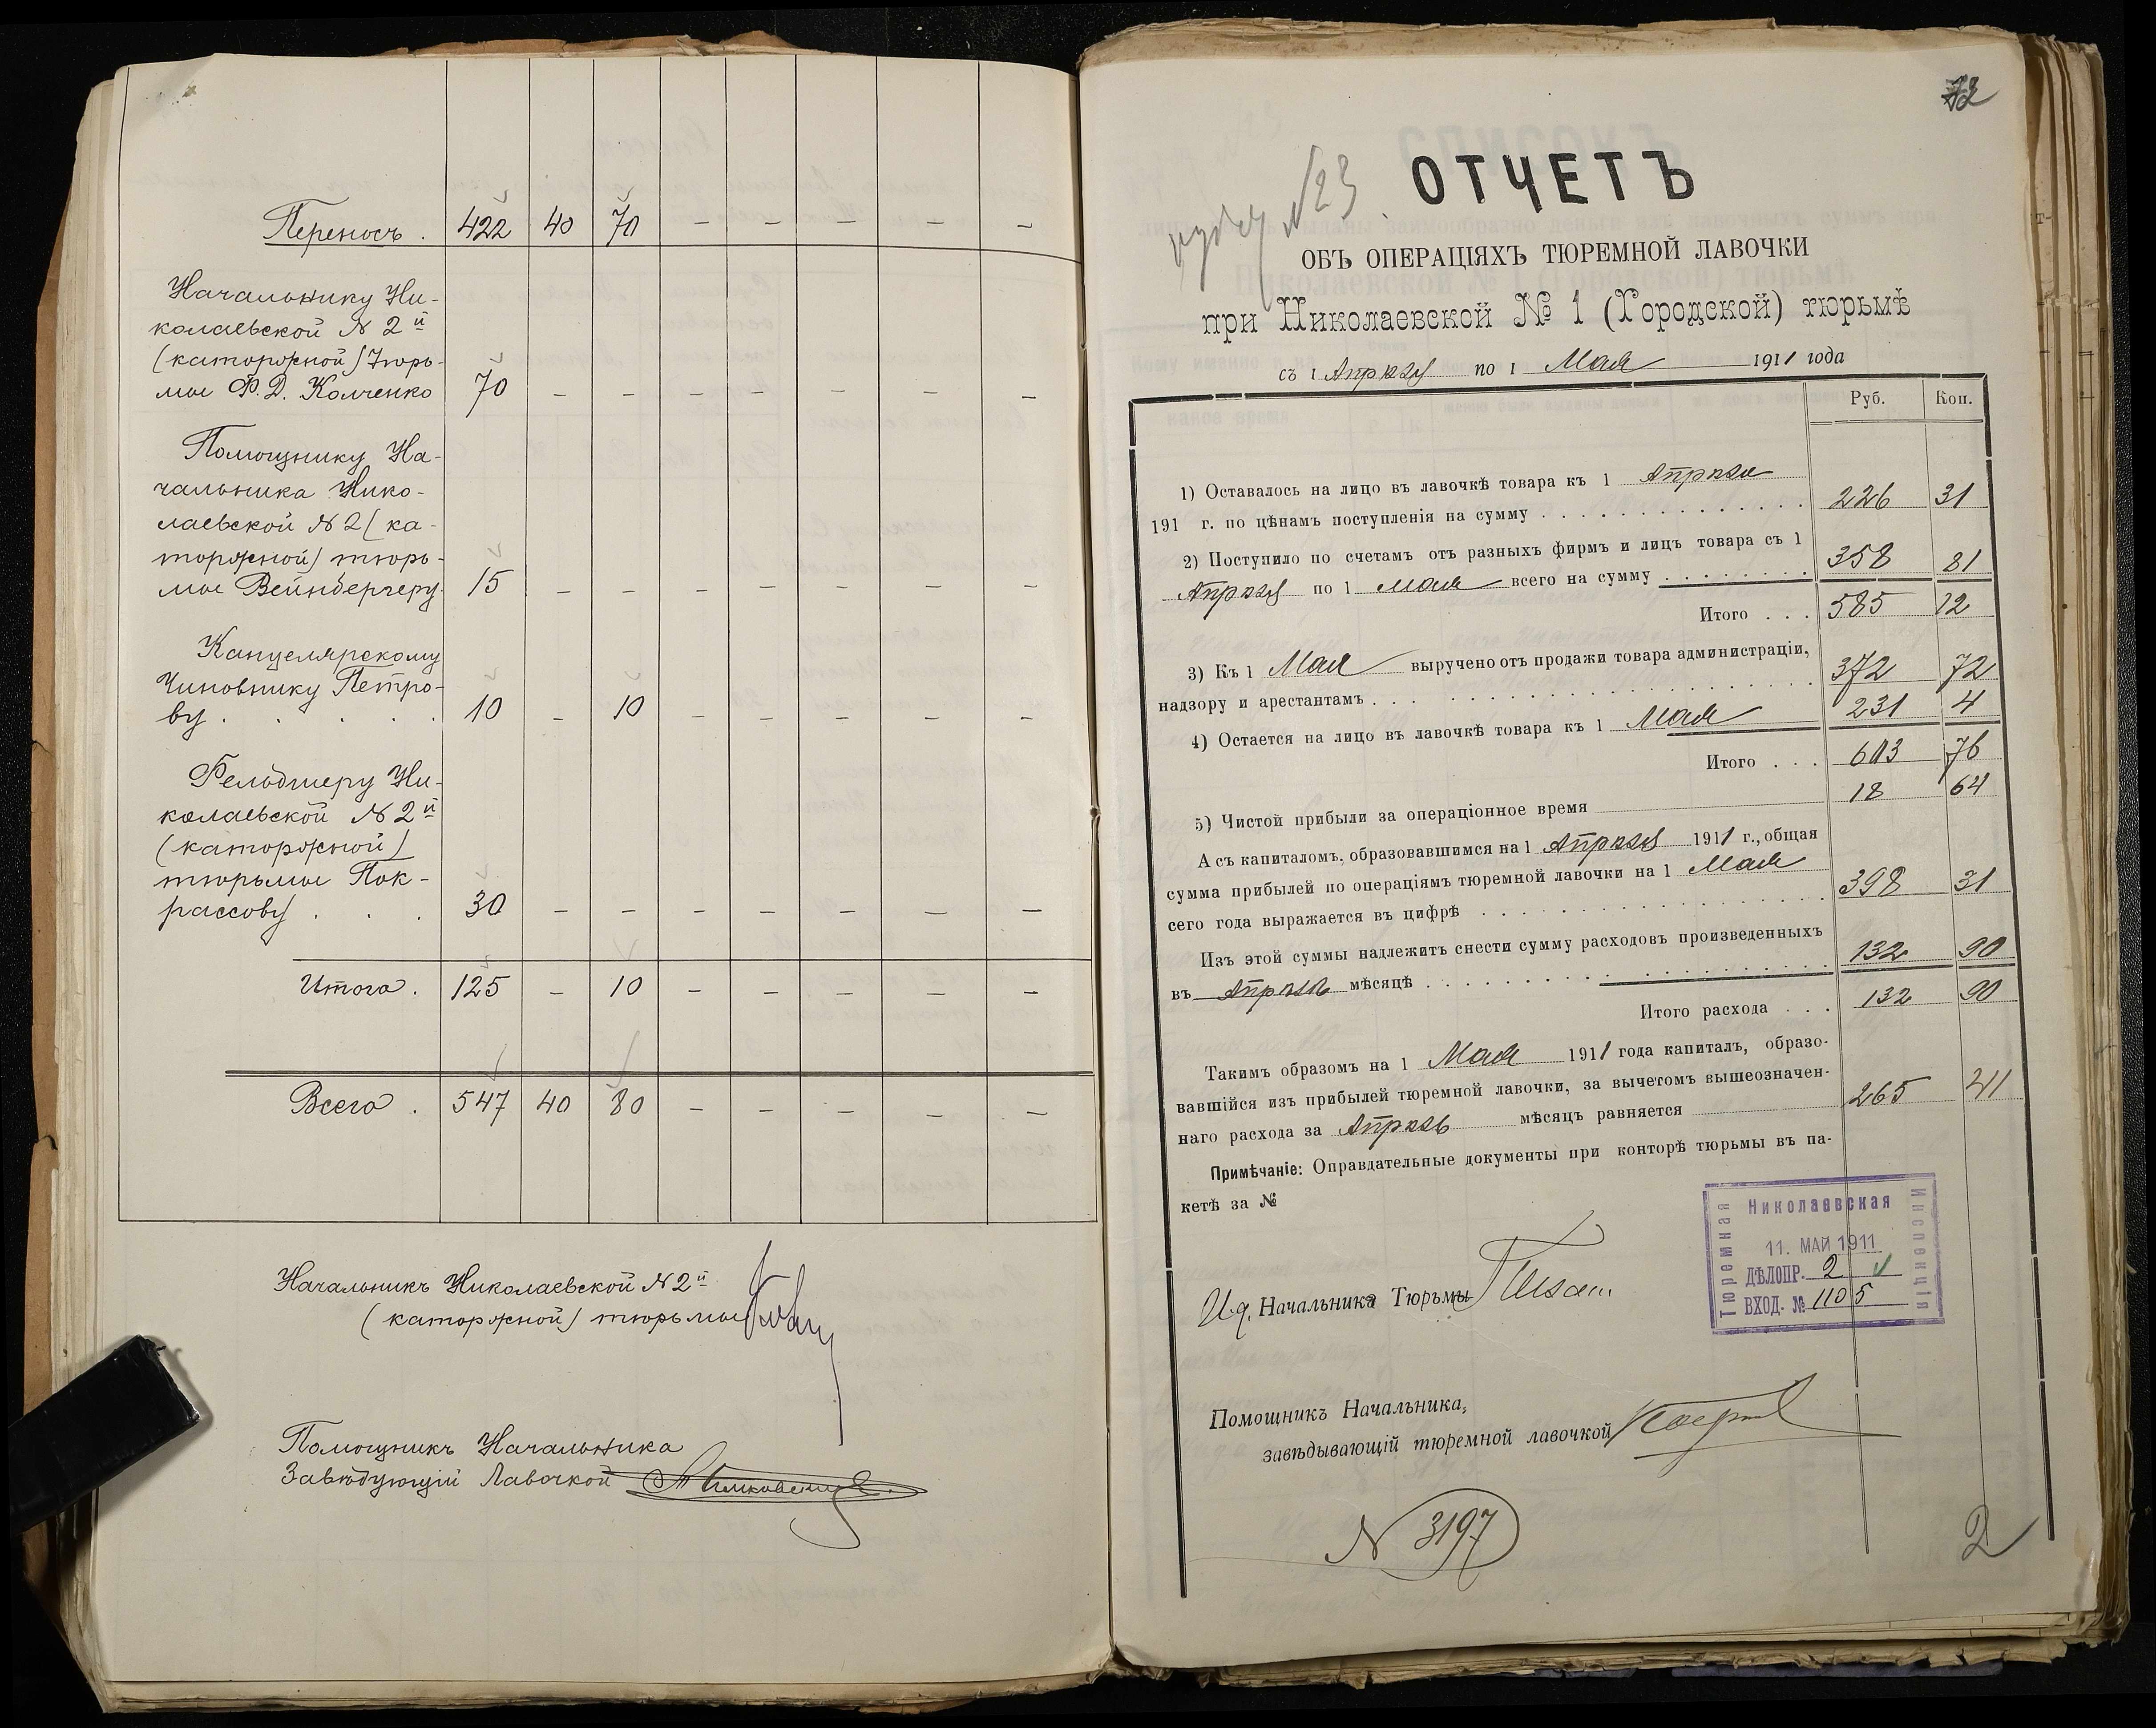 Переносъ . 422 40 70 – – – – –
Начальнику Ни-
колаевской № 2й
(каторжной) Тюрь-
мы Ф. Д. Колченко 70 – – – – – – –
Помощнику На-
чальника Нико-
лаевской № 2 (ка-
торжной) тюрь-
мы Вейнбергеру 15 – – – – – – –
Канцелярскому
Чиновнику Петро-
ву . . . . . 10 – 10 – – – – –
Фельдшеру Ни-
колаевской № 2й
(каторжной)
тюрьмы Пок-
рассову . . . 30 – – – – – – –
Итого . 125 – 10 – – – – –
Всего . 547 40 80 – – – – –
Начальникъ Николаевской № 2й
(каторжной) тюрьмы
Помощникъ Начальника
Завѣдующій Лавочкой
№ 23
ОТЧЕТЪ
ОБЪ ОПЕРАЦІЯХЪ ТЮРЕМНОЙ ЛАВОЧКИ
при Николаевской № 1 (Городской) тюрьмѣ
съ 1 Апрѣля по 1 Мая 1911 года
Руб. Коп.
1) Оставалось на лицо въ лавочкѣ товара къ 1 Апрѣля
191 г. по цѣнамъ поступленія на сумму . . . . . . . . . . . . . . 226 31
2) Поступило по счетамъ отъ разныхъ фирмъ и лицъ товара съ 1
Апрѣля по 1 Мая всего на сумму . . . . . . . . 358 81
Итого . . . 585 12
3) Къ 1 Мая выручено отъ продажи товара администраціи,
надзору и арестантамъ . . . . . . . . . . . . . . . . . . . . 372 72
4) Остается на лицо въ лавочкѣ товара къ 1 Мая 231 4
Итого . . . 603 76
5) Чистой прибыли за операціонное время 18 64
А съ капиталомъ, образовавшимся на 1 Апрѣля 1911 г., общая
сумма прибылей по операціямъ тюремной лавочки на 1 Мая
сего года выражается въ цифрѣ . . . . . . . . . . . . . . . . . . 398 31
Изъ этой суммы надлежитъ снести сумму расходовъ произведенныхъ
въ Апрѣлѣ мѣсяцѣ . . . . . . . . . . . . . . . . . . . . 132 90
Итого расхода . . . 132 90
Такимъ образомъ на 1 Мая 1911 года капиталъ, образо-
вавшійся изъ прибылей тюремной лавочки, за вычетомъ вышеозначен-
наго расхода за Апрѣль мѣсяцъ равняется 265 41
Примѣчаніе: Оправдательные документы при конторѣ тюрьмы въ па-
кетѣ за №
Николаевская
Тюремная
Инспекція
11. МАЙ 1911
ДѢЛОПР. 2
ВХОД. № 1105
И.д. Начальника Тюрьмы
Помощникъ Начальника,
завѣдывающій тюремной лавочкой
№ 3197
2